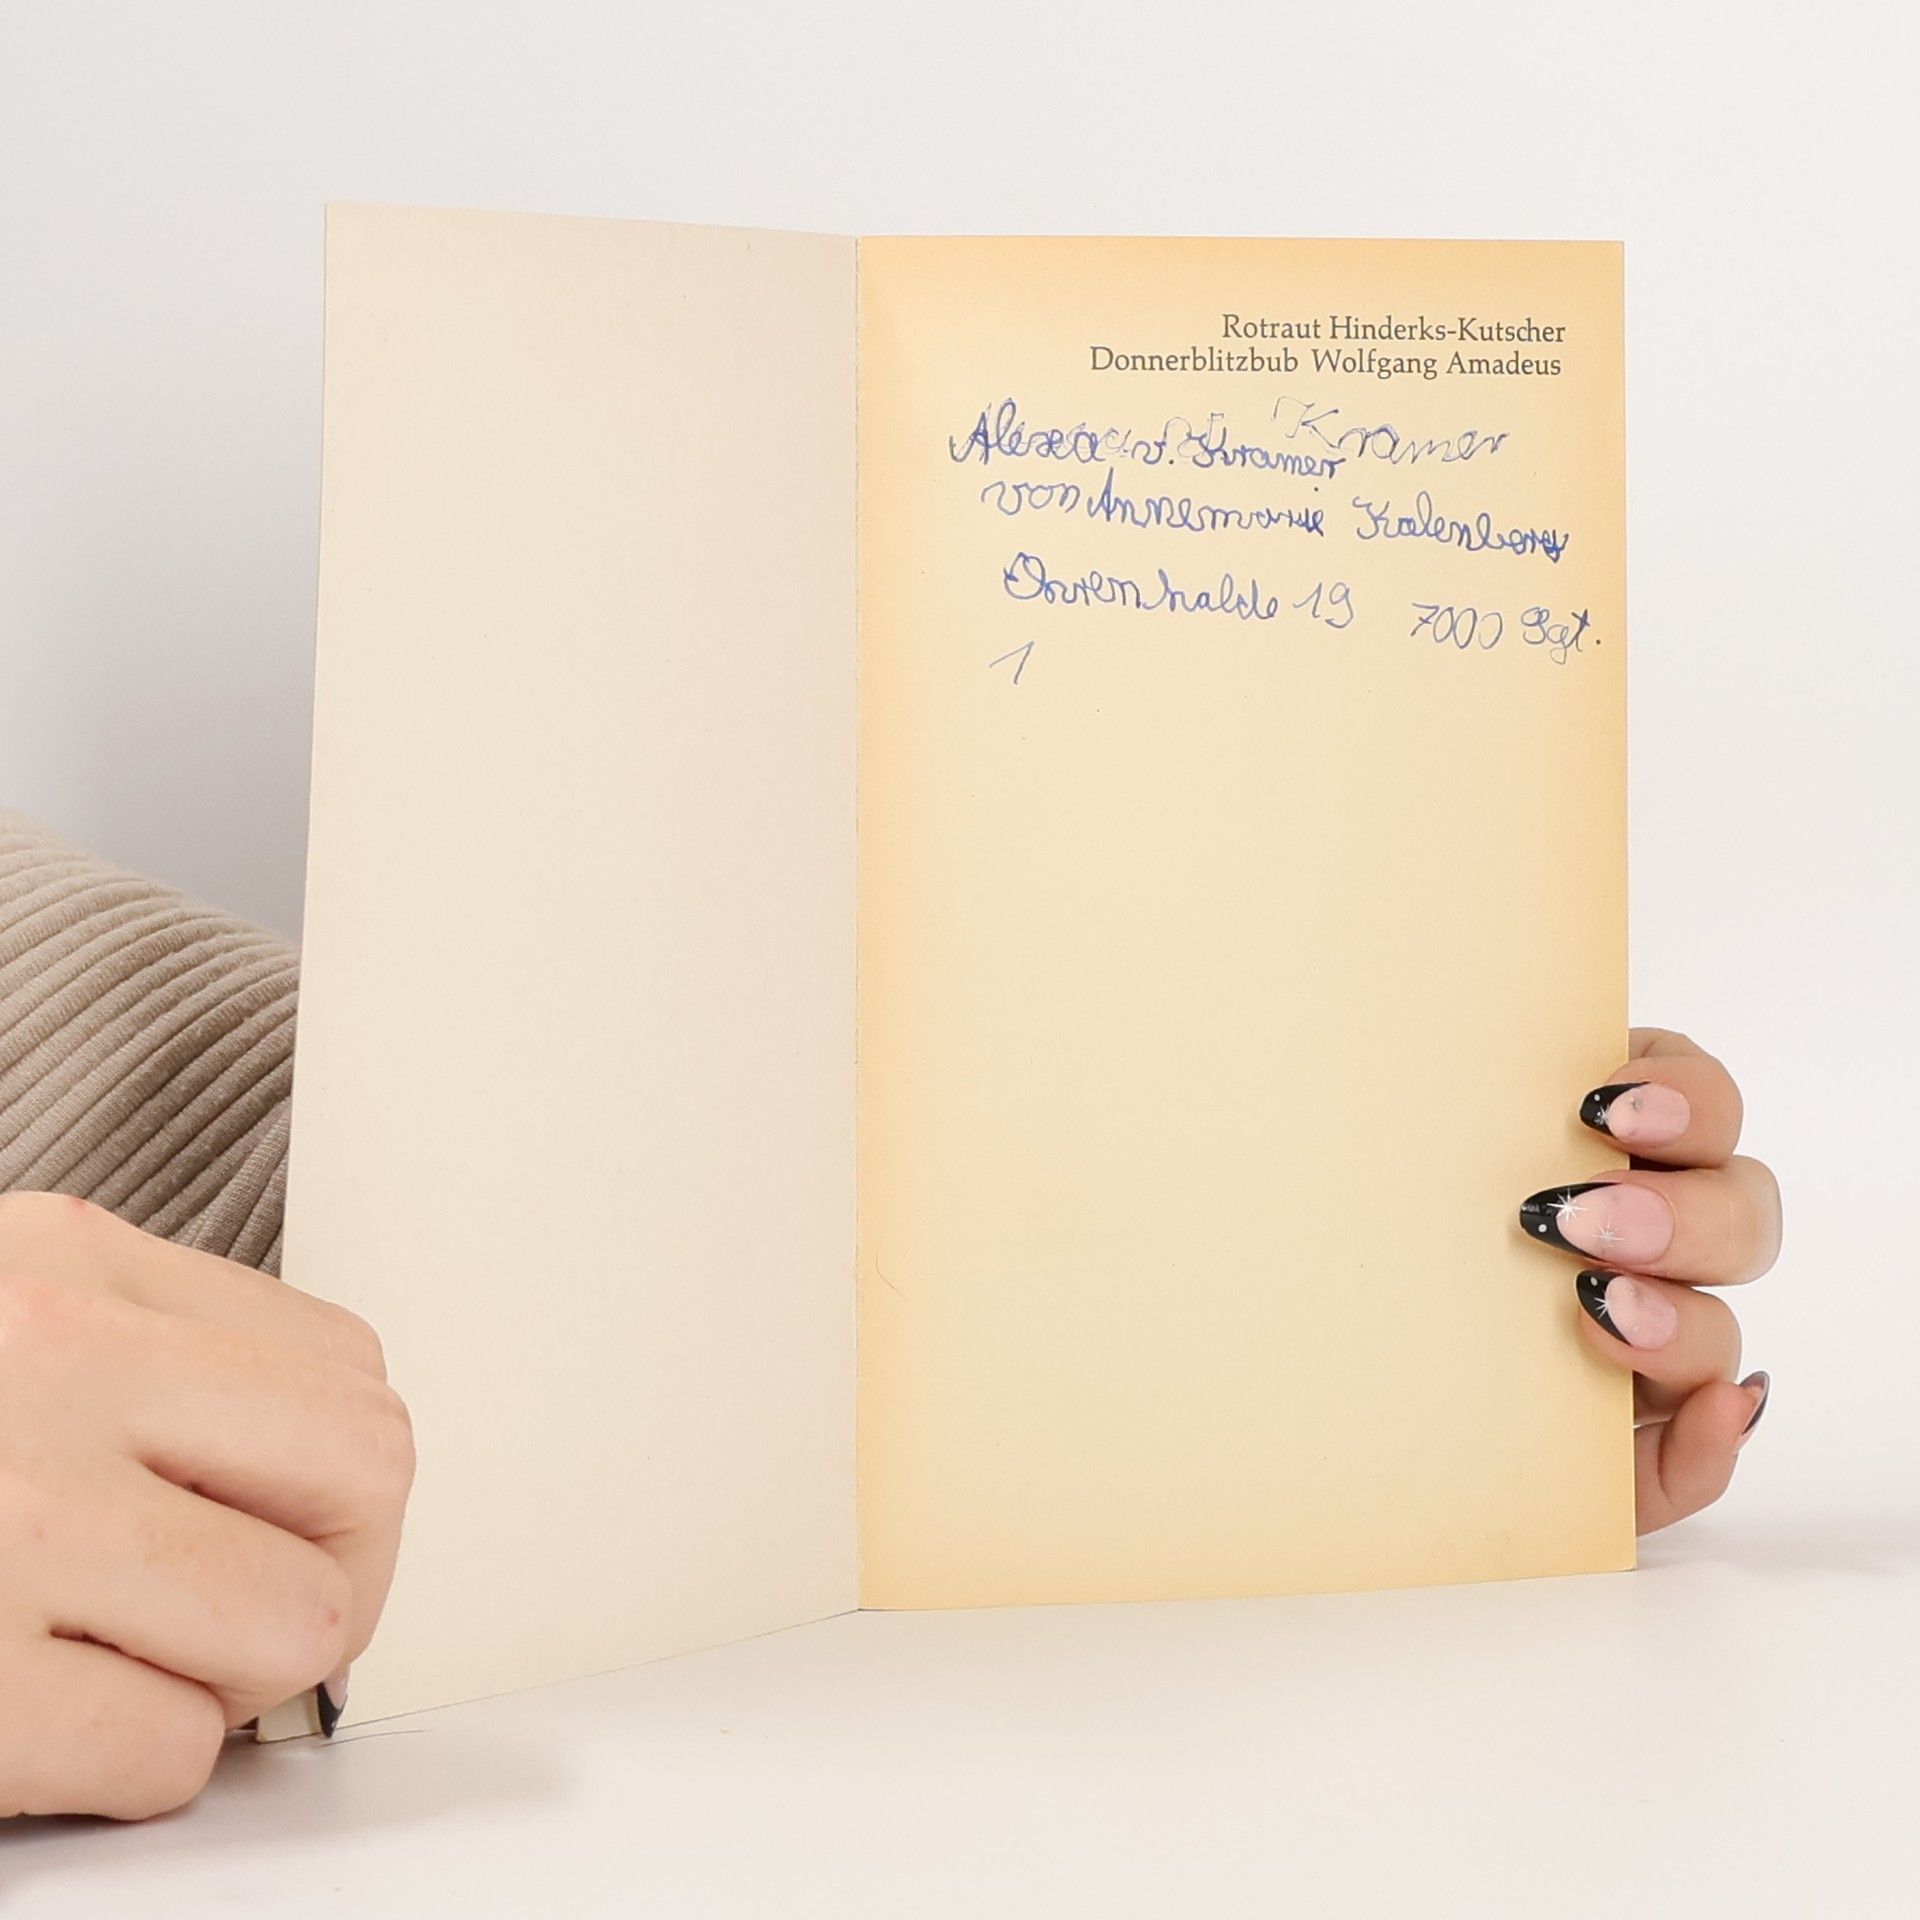 Rotraut Hinderks-Kutscher
Donnerblitzbub Wolfgang Amadeus
Alexa v. Kramer Kramer
von Annemarie Kalenberg
halde 19 7000 Sgt.
1